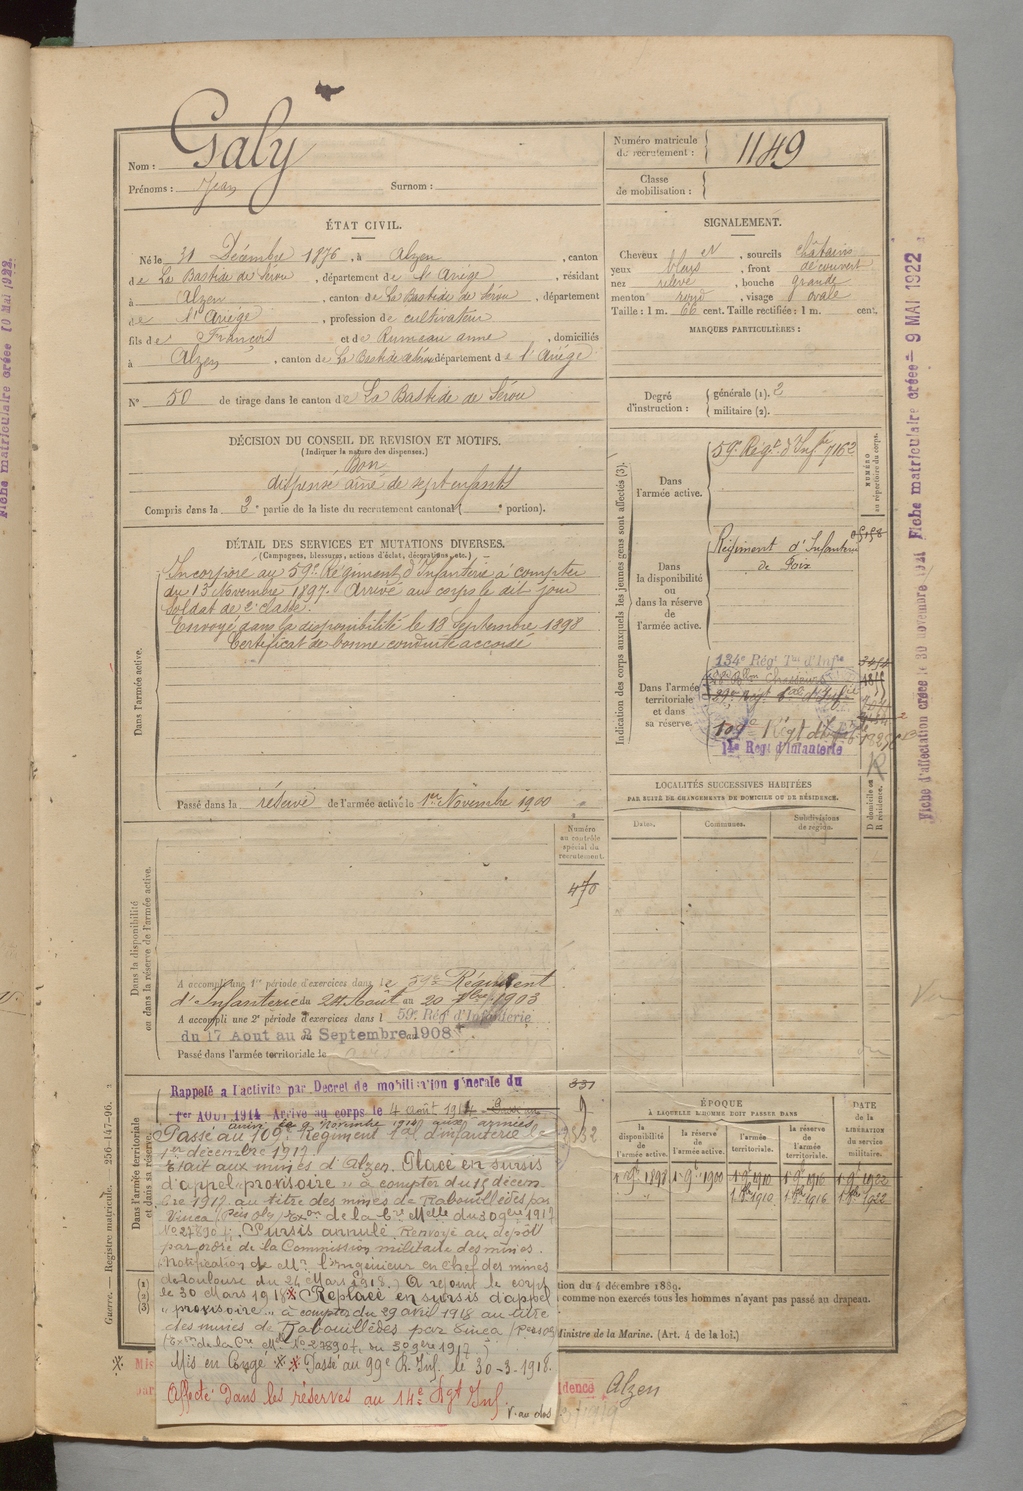 Nom : Galy
Prénoms : Jean Surnom :
Numéro matricule du recrutement : 1149
Classe de mobilisation :
ÉTAT CIVIL.
Né le 31 Décembre 1876, à Alzen, canton
de La Bastide de Sérou, département de l'Ariège, résidant
à Alzen, canton de La Bastide de Sérou, département
de l'Ariège, profession de cultivateur
fils de François et de Rumeau anne, domiciliés
à Alzen, canton de La Bastide de Sérou département de l'Ariège
N° 50 de tirage dans le canton de La Bastide de Sérou
SIGNALEMENT.
Cheveux et sourcils châtains
yeux bleus, front découvert
nez relevé, bouche grande
menton rond, visage ovale
Taille : 1 m. 66 cent. Taille rectifiée : 1 m. cent.
MARQUES PARTICULIÈRES :
Degré d'instruction : générale (1). 2
militaire (2).
DÉCISION DU CONSEIL DE REVISION ET MOTIFS.
(Indiquer la nature des dispenses.)
Bon
dispensé aîné de sept enfants
Compris dans la 3e partie de la liste du recrutement cantonal ( portion).
DÉTAIL DES SERVICES ET MUTATIONS DIVERSES.
(Campagnes, blessures, actions d'éclat, décorations, etc.)
Dans l'armée active.
Incorporé au 59e Régiment d'Infanterie à compter
du 13 Novembre 1897. Arrivé au corps le dit jour
Soldat de 2e classe.
Envoyé dans la disponibilité le 19 Septembre 1898
Certificat de bonne conduite accordé
Passé dans la réserve de l'armée active le 1er Novembre 1900
Indication des corps auxquels les jeunes gens sont affectés (3).
NUMÉRO au répertoire du corps.
Dans l'armée active.
59e Régt d'Infie 7162
Dans la disponibilité ou dans la réserve de l'armée active.
Régiment d'Infanterie
de Foix
Dans l'armée territoriale et dans sa réserve.
134e Régt Tal d'Infie
109e Régt d'Inf
14e Régt d'Infanterie
LOCALITÉS SUCCESSIVES HABITÉES
PAR SUITE DE CHANGEMENTS DE DOMICILE OU DE RÉSIDENCE.
Dates. Communes. Subdivisions de région. D domicile ou R résidence.
R
Numéro au contrôle spécial du recrutement.
470
Dans la disponibilité ou dans la réserve de l'armée active.
A accompli une 1re période d'exercices dans le 59e Régiment
d'Infanterie du 24 Août au 20 7bre 1903
A accompli une 2e période d'exercices dans l 59e Rég d'Infanterie
du 17 Aout au 2 Septembre 1908
Passé dans l'armée territoriale le
Dans l'armée territoriale et dans sa réserve.
331
Rappelé a l'activité par Decret de mobilisation générale du
1er AOUT 1914 Arrivé au corps le 4 août 1914
Passé au 109e Régiment Tal d'infanterie le
1er décembre 1917.
Etait aux mines d'Alzen. Placé en sursis
d'appel "provisoire" à compter du 1er décem
bre 1917 au titre des mines de Rabouillèdes par
Vinça (Pées Oles) Exon de la Cre Melle du 30 9bre 1917
No 27890 . Sursis annulé, renvoyé au dépôt
par ordre de la Commission militaire des mines.
(Notification de Mr l'ingénieur en chef des mines
de Toulouse du 24 Mars 1918.) A rejoint le corps
le 30 Mars 1918. Replacé en sursis d'appel
"provisoire" à compter du 29 avril 1918 au titre
des mines de Rabouillèdes par Vinça
(Exon de la Cre Mlle No 27890 du 30 9bre 1917)
Mis en Congé Passé au 99e R. Inf. le 30-3-1918.
Affecté dans les réserves au 14e Rgt Inf.
V. au dos
ÉPOQUE
À LAQUELLE L'HOMME DOIT PASSER DANS
DATE de la LIBÉRATION du service militaire.
la disponibilité de l'armée active. la réserve de l'armée active. l'armée territoriale. la réserve de l'armée territoriale.
1er 9bre 1898 1er 9bre 1900 1er 9bre 1910 1er 9bre 1916 1er 9bre 1922
1er 8bre 1910 1er 8bre 1916 1er 8bre 1922
tion du 4 décembre 1889.
comme non exercés tous les hommes n'ayant pas passé au drapeau.
Ministre de la Marine. (Art. 4 de la loi.)
idence Alzen
Guerre. — Registre matricule. 256-147-96.
Fiche matriculaire créée 9 MAI 1922
Fiche d'affectation créée le 30 novembre 1921 Fiche matriculaire créée 9 MAI 1922